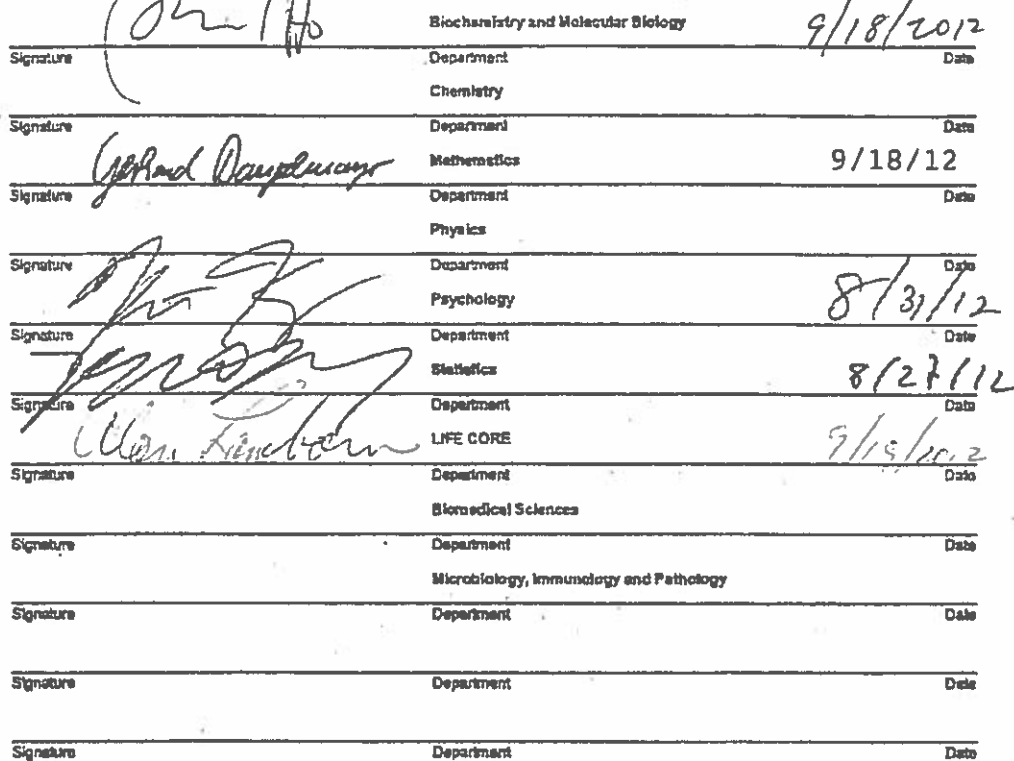 Biochemistry and Molecular Biology 9/18/2012
Signature Department Date
Chemistry
Signature Department Date
Mathematics 9/18/12
Signature Department Date
Physics
Signature Department Date
Psychology 8/31/12
Signature Department Date
Statistics 8/27/12
Signature Department Date
LIFE CORE
Signature Department Date
Biomedical Sciences
Signature Department Date
Microbiology, Immunology and Pathology
Signature Department Date
Signature Department Date
Signature Department Date